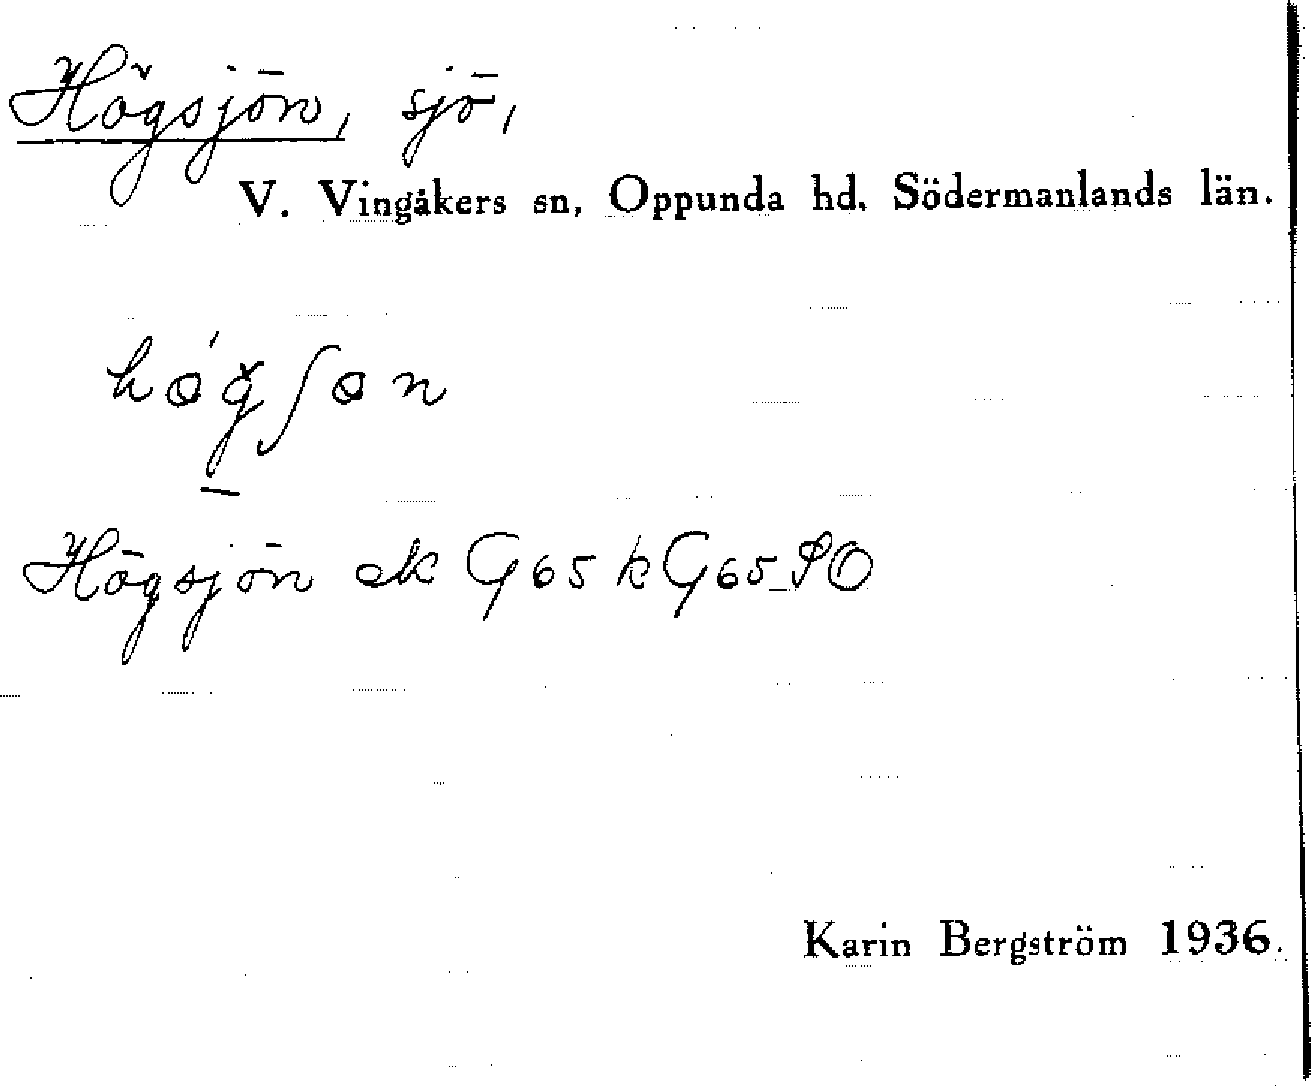 Högsjön, sjö,
V. Vingåkers sn, Oppunda hd. Södermanlands län.
Högsjön ek G65 k G65 SO
Karin Bergström 1936.